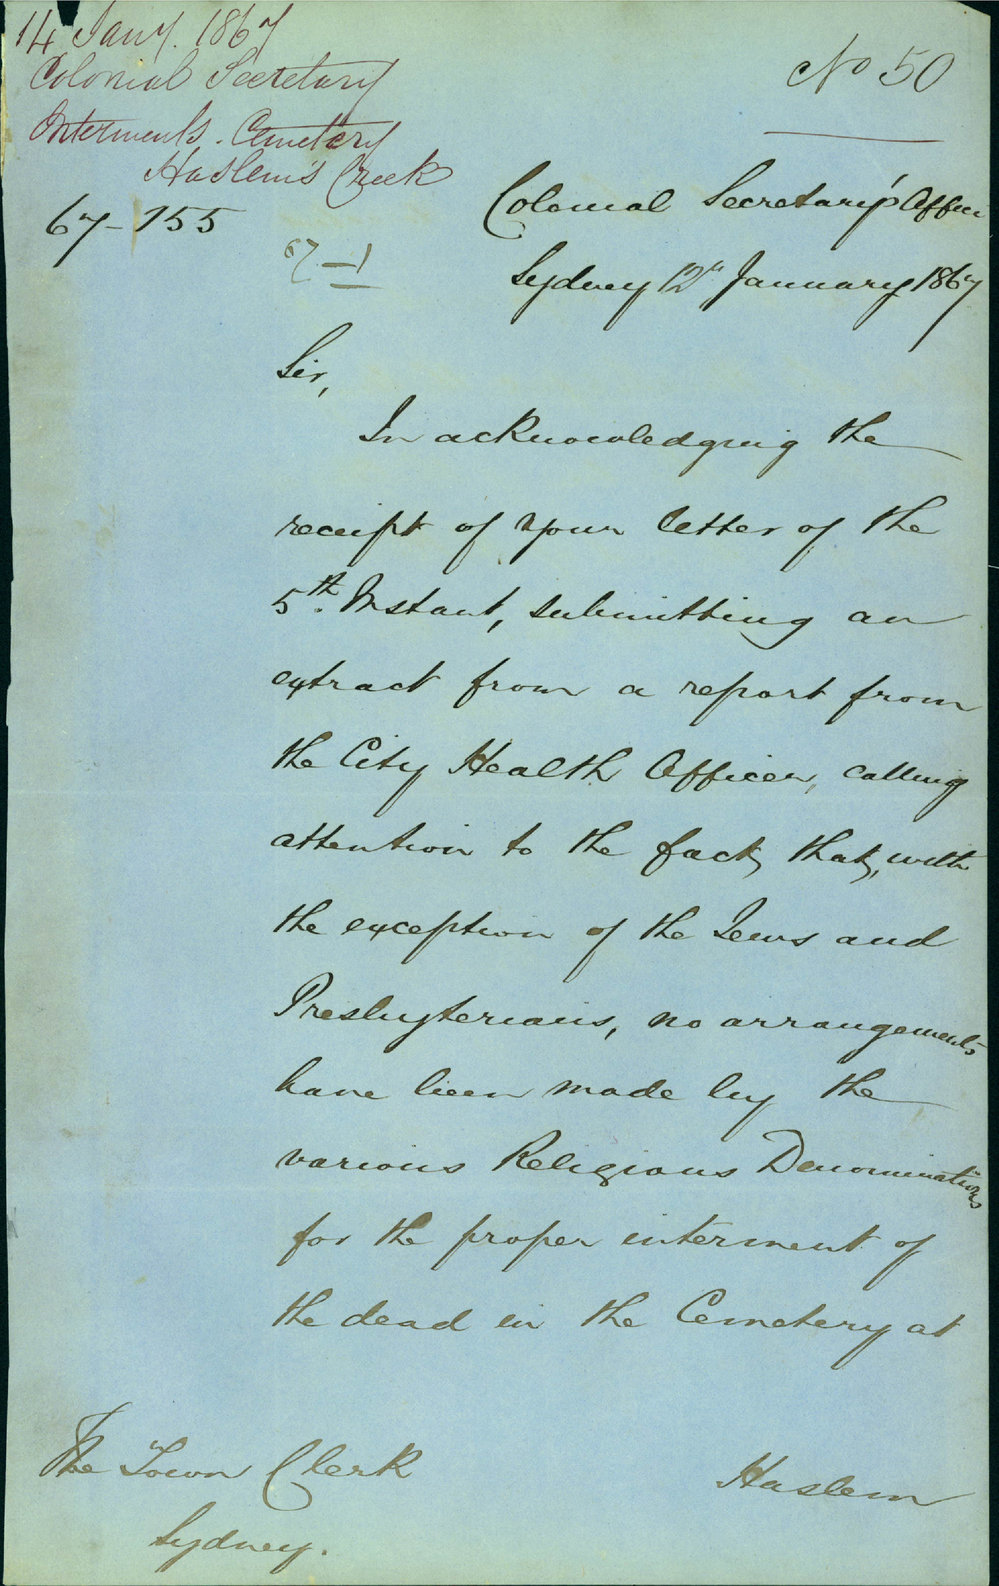 14 Jany. 1867
Colonial Secretary
Interments. Cemetery
Haslem's Creek
67-155
67-1
No 50
Colonial Secretary's Office
Sydney 12th January 1867
Sir,
In acknowledging the
receipt of your letter of the
5th. Instant, submitting an
extract from a report from
the City Health Officer, calling
attention to the fact, that, with
the exception of the Jews and
Presbyterians, no arrangements
have been made by the
various Religious Denominations
for the proper interment of
the dead in the Cemetery at
The Town Clerk
Sydney.
Haslem